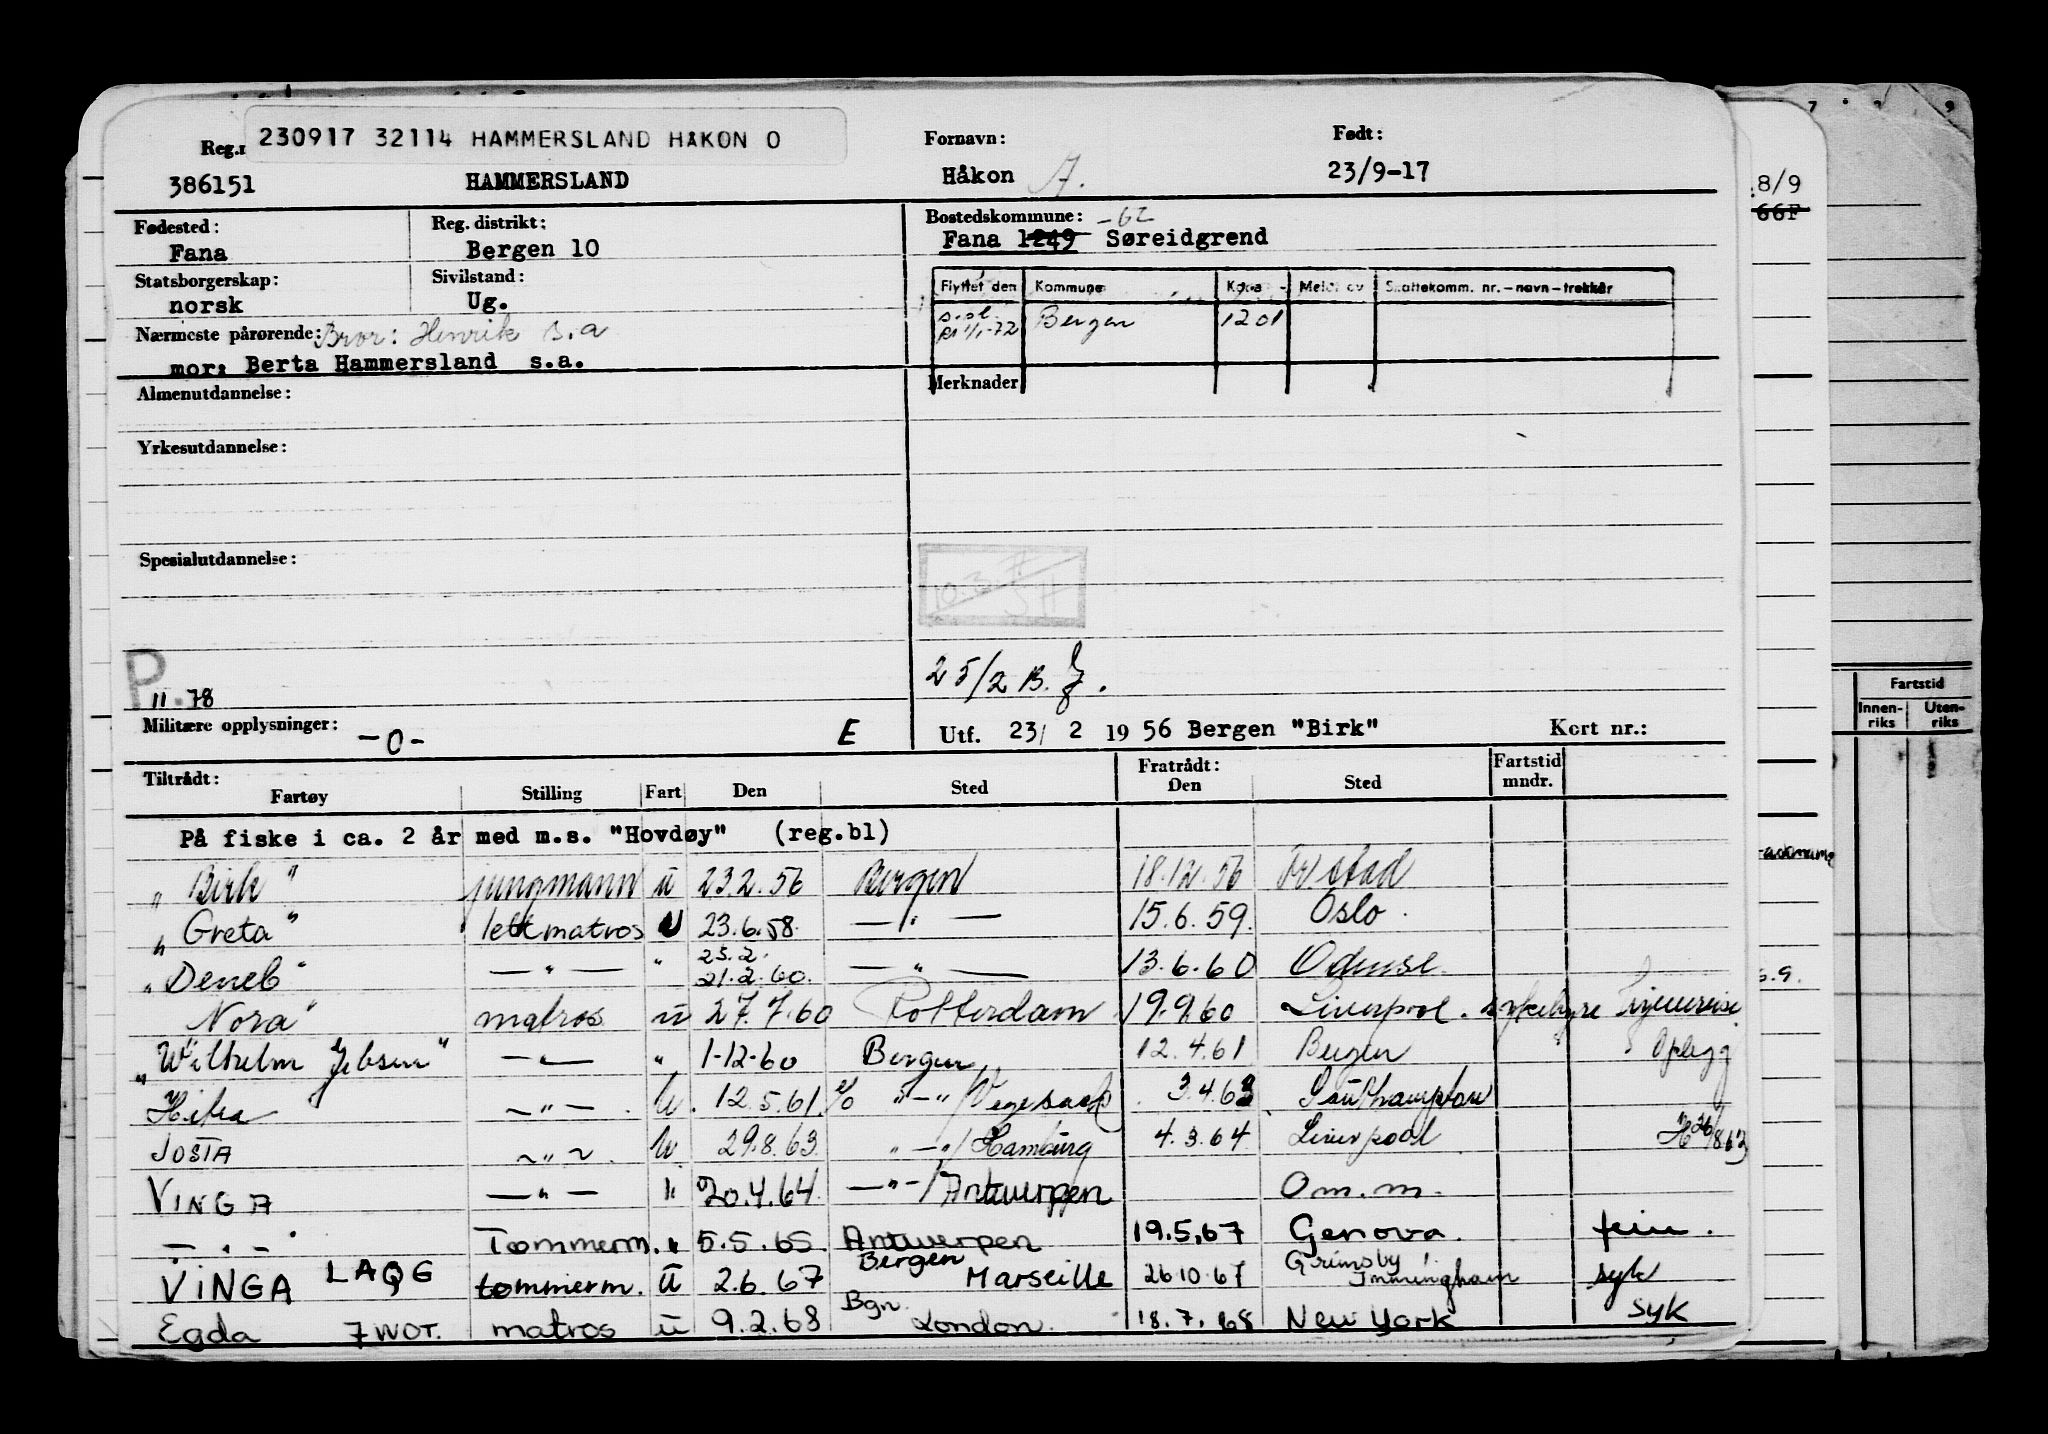 230917 32114 HAMMERSLAND HÅKON O
Reg.n Fornavn: Født:
386151 HAMMERSLAND Håkon A. 23/9-17
Fødested: Reg. distrikt: Bostedskommune: -62
Fana Bergen 10 Fana 1249 Søreidgrend
Statsborgerskap: Sivilstand:
norsk Ug.
Flyttet den Kommune Meld. av Skattekomm. nr. - navn - trekkår
1/1-72 Bergen 1201
Nærmeste pårørende: Bror: Henrik s.a
mor: Berta Hammersland s.a.
Almenutdannelse: Merknader
Yrkesutdannelse:
Spesialutdannelse:
P
11.78
25/2 B.
Militære opplysninger: -0- E Utf. 23/ 2 1956 Bergen "Birk" Kort nr.:
Tiltrådt: Fratrådt: Fartstid
Fartøy Stilling Fart Den Sted Den Sted mndr.
På fiske i ca. 2 år med m.s. "Hovdøy" (reg.bl)
"Birk" jungmann u 23.2.56 Bergen 18.12.56 Fr.stad
"Greta" lettmatros U 23.6.58. —"— 15.6.59. Oslo.
"Deneb" —"— " 25.2. 21.2.60. —"— 13.6.60 Odense.
"Nora" matros u 27.7.60 Rotterdam 19.9.60 Liverpool.
"Wilhelm Jebsen" —"— " 1-12-60 Bergen 12.4.61 Bergen Oplegg
—"—. U. 12.5.61. "—"/Vegesack 3.4.63 Southampton
JOSTA —"—. U. 29.8.63. "—"/Hamburg 4.3.64. Liverpool
VINGA —"— " 20.4.64. —"—/Antwerpen Om.m.
—"— Tømmerm. " 5.5.65. Antwerpen 19.5.67 Genova. ferie.
VINGA LAQG tømmerm. U 2.6.67 Bergen Marseille 26.10.67 Grimsby Immingham syk
Egda 7WOT. matros u 9.2.68 Bgn. London. 18.7.68 New York SYK
8/9
66F
Fartstid
Innen-riks Uten-riks